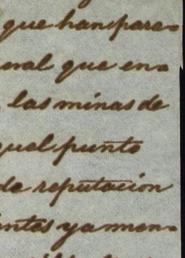 que han pare=
nal que en=
las minas de
qual punto
de reputacion
entes ya men=